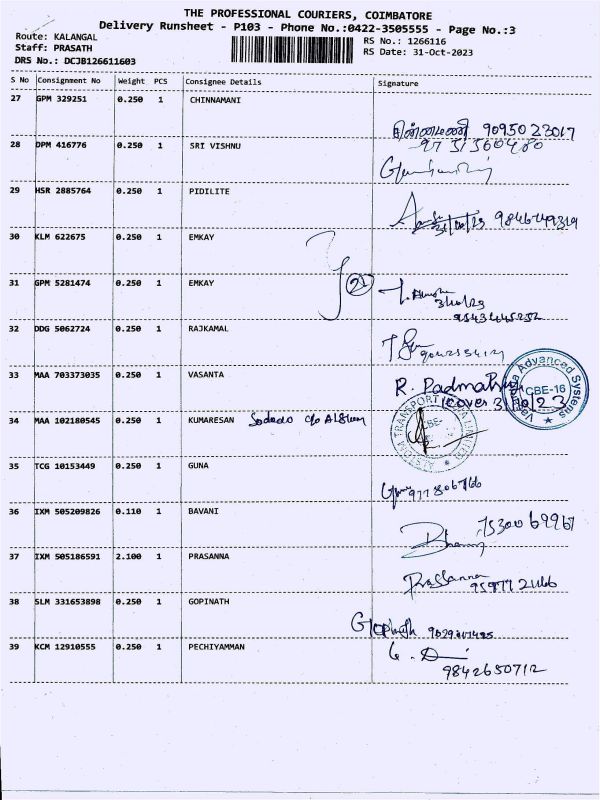 THE PROFESSIONAL COURIERS, COIMBATORE
Delivery Runsheet - P103 - Phone No.:0422-3505555 - Page No.:3
Route: KALANGAL
RS No.: 1266116
Staff: PRASATH
RS Date: 31-Oct-2023
DRS No.: DCJB126611603
S No Consignment No Weight PCS Consignee Details Signature
27 GPM 329251 0.250 1 CHINNAMANI
சின்னமணி 9095023017
28 DPM 416776 0.250 1 SRI VISHNU
29 HSR 2885764 0.250 1 PIDILITE
31/10/23 9846749319
30 KLM 622675 0.250 1 EMKAY
31 GPM 5281474 0.250 1 EMKAY
21
31/10/23
32 DDG 5062724 0.250 1 RAJKAMAL
33 MAA 703373035 0.250 1 VASANTA
R. Padma
Advanced Systems
CBE-16
34 MAA 102180545 0.250 1 KUMARESAN
TRANSPORT LIMITED
CBE-
35 TCG 10153449 0.250 1 GUNA
36 IXM 505209826 0.110 1 BAVANI
7530069967
37 IXM 505186591 2.100 1 PRASANNA
Prasanna
38 SLM 331653898 0.250 1 GOPINATH
Gopinath
39 KCM 12910555 0.250 1 PECHIYAMMAN
9842650712